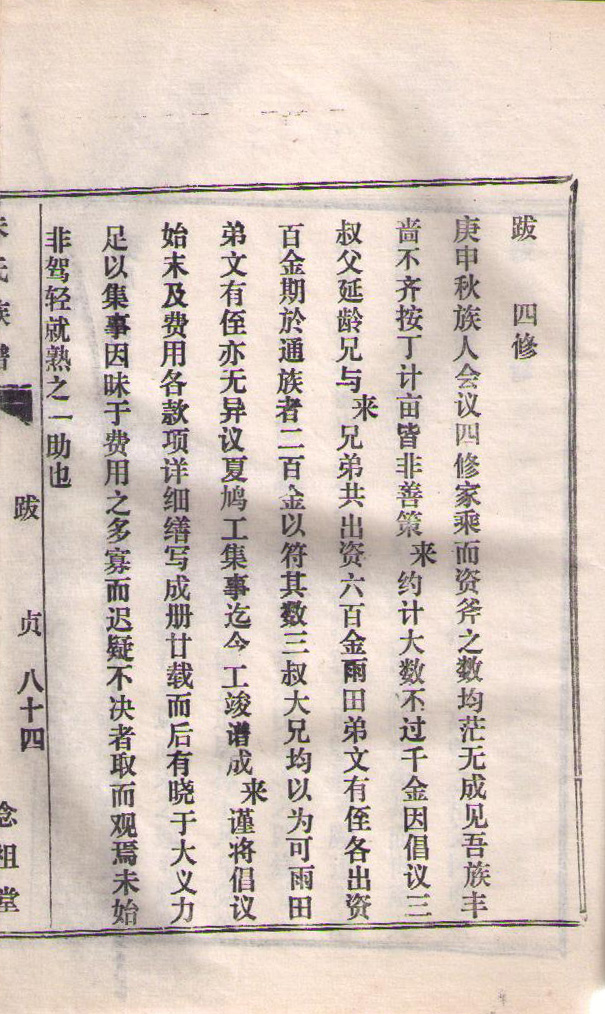 跋　四修
庚申秋族人会议四修家乘而资斧之数均茫无成见吾族丰
啬不齐按丁计亩皆非善策来约计大数不过千金因倡议三
叔父延龄兄与来兄弟共出资六百金雨田弟文有侄各出资
百金期於通族者二百金以符其数三叔大兄均以为可雨田
弟文有侄亦无异议夏鸠工集事迄今工竣谱成来谨将倡议
始末及费用各款项详细缮写成册廿载而后有晓于大义力
足以集事因昧于费用之多寡而迟疑不决者取而观焉未始
非驾轻就熟之一助也
氏族谱
跋
贞 八十四
念祖堂